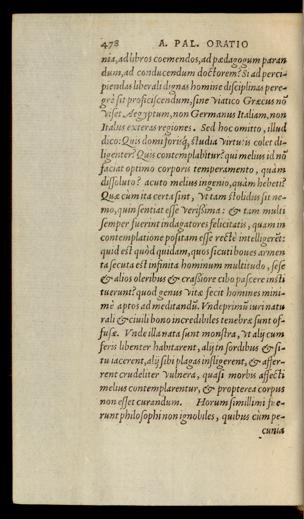 478 A. PAL. ORATIO
nia, ad libros coemendos, ad pædagogum paran
dum, ad conducendum doctorem? Si ad perci-
piendas liberali dignas homine disciplinas pere-
grè sit proficiscendum, sine viatico Græcus nõ
viset Aegyptum, non Germanus Italiam, non
Italus exteras regiones. Sed hoc omitto, illud
dico: Quis domi forisq́, studia virtutis colet di-
ligenter? Quis contemplabitur? qui melius id nõ
faciat optimo corporis temperamento, quàm
dissoluto? acuto melius ingenio, quàm hebeti?
Quæ cùm ita certa sint, vt tam stolidus sit ne-
mo, quin sentiat esse verissima: & tam multi
semper fuerint indagatores felicitatis, quam in
contemplatione positam esse rectè intelligerēt:
quid est quòd quidam, quos sicuti boues armen
ta secuta est infinita hominum multitudo, sese
& alios oleribus & crassiore cibo pascere insti
tuerunt? quod genus vitæ fecit homines mini-
mè aptos ad meditandũ. Vnde primũ iuri natu
rali & ciuili bono incredibiles tenebræ sunt of-
fusæ. Vnde illa nata sunt monstra, vt alij cum
feris libenter habitarent, alij in sordibus & si-
tu iacerent, alij sibi plagas infligerent, & affer-
rent crudeliter vulnera, quasi morbis affecti
melius contemplarentur, & propterea corpus
non esset curandum. Horum simillimi fue-
runt philosophi non ignobiles, quibus cùm pe-
cunia